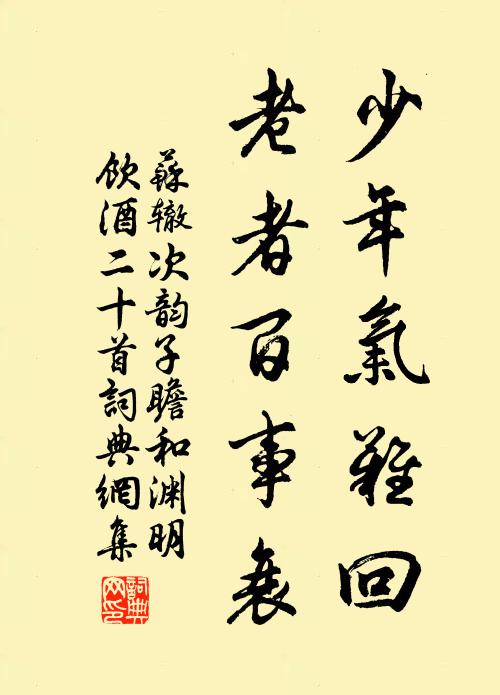 少年氣難回
老者百事衰
蘇辙次韵子瞻和渊明
飲酒二十首詞典網集
詞典網印